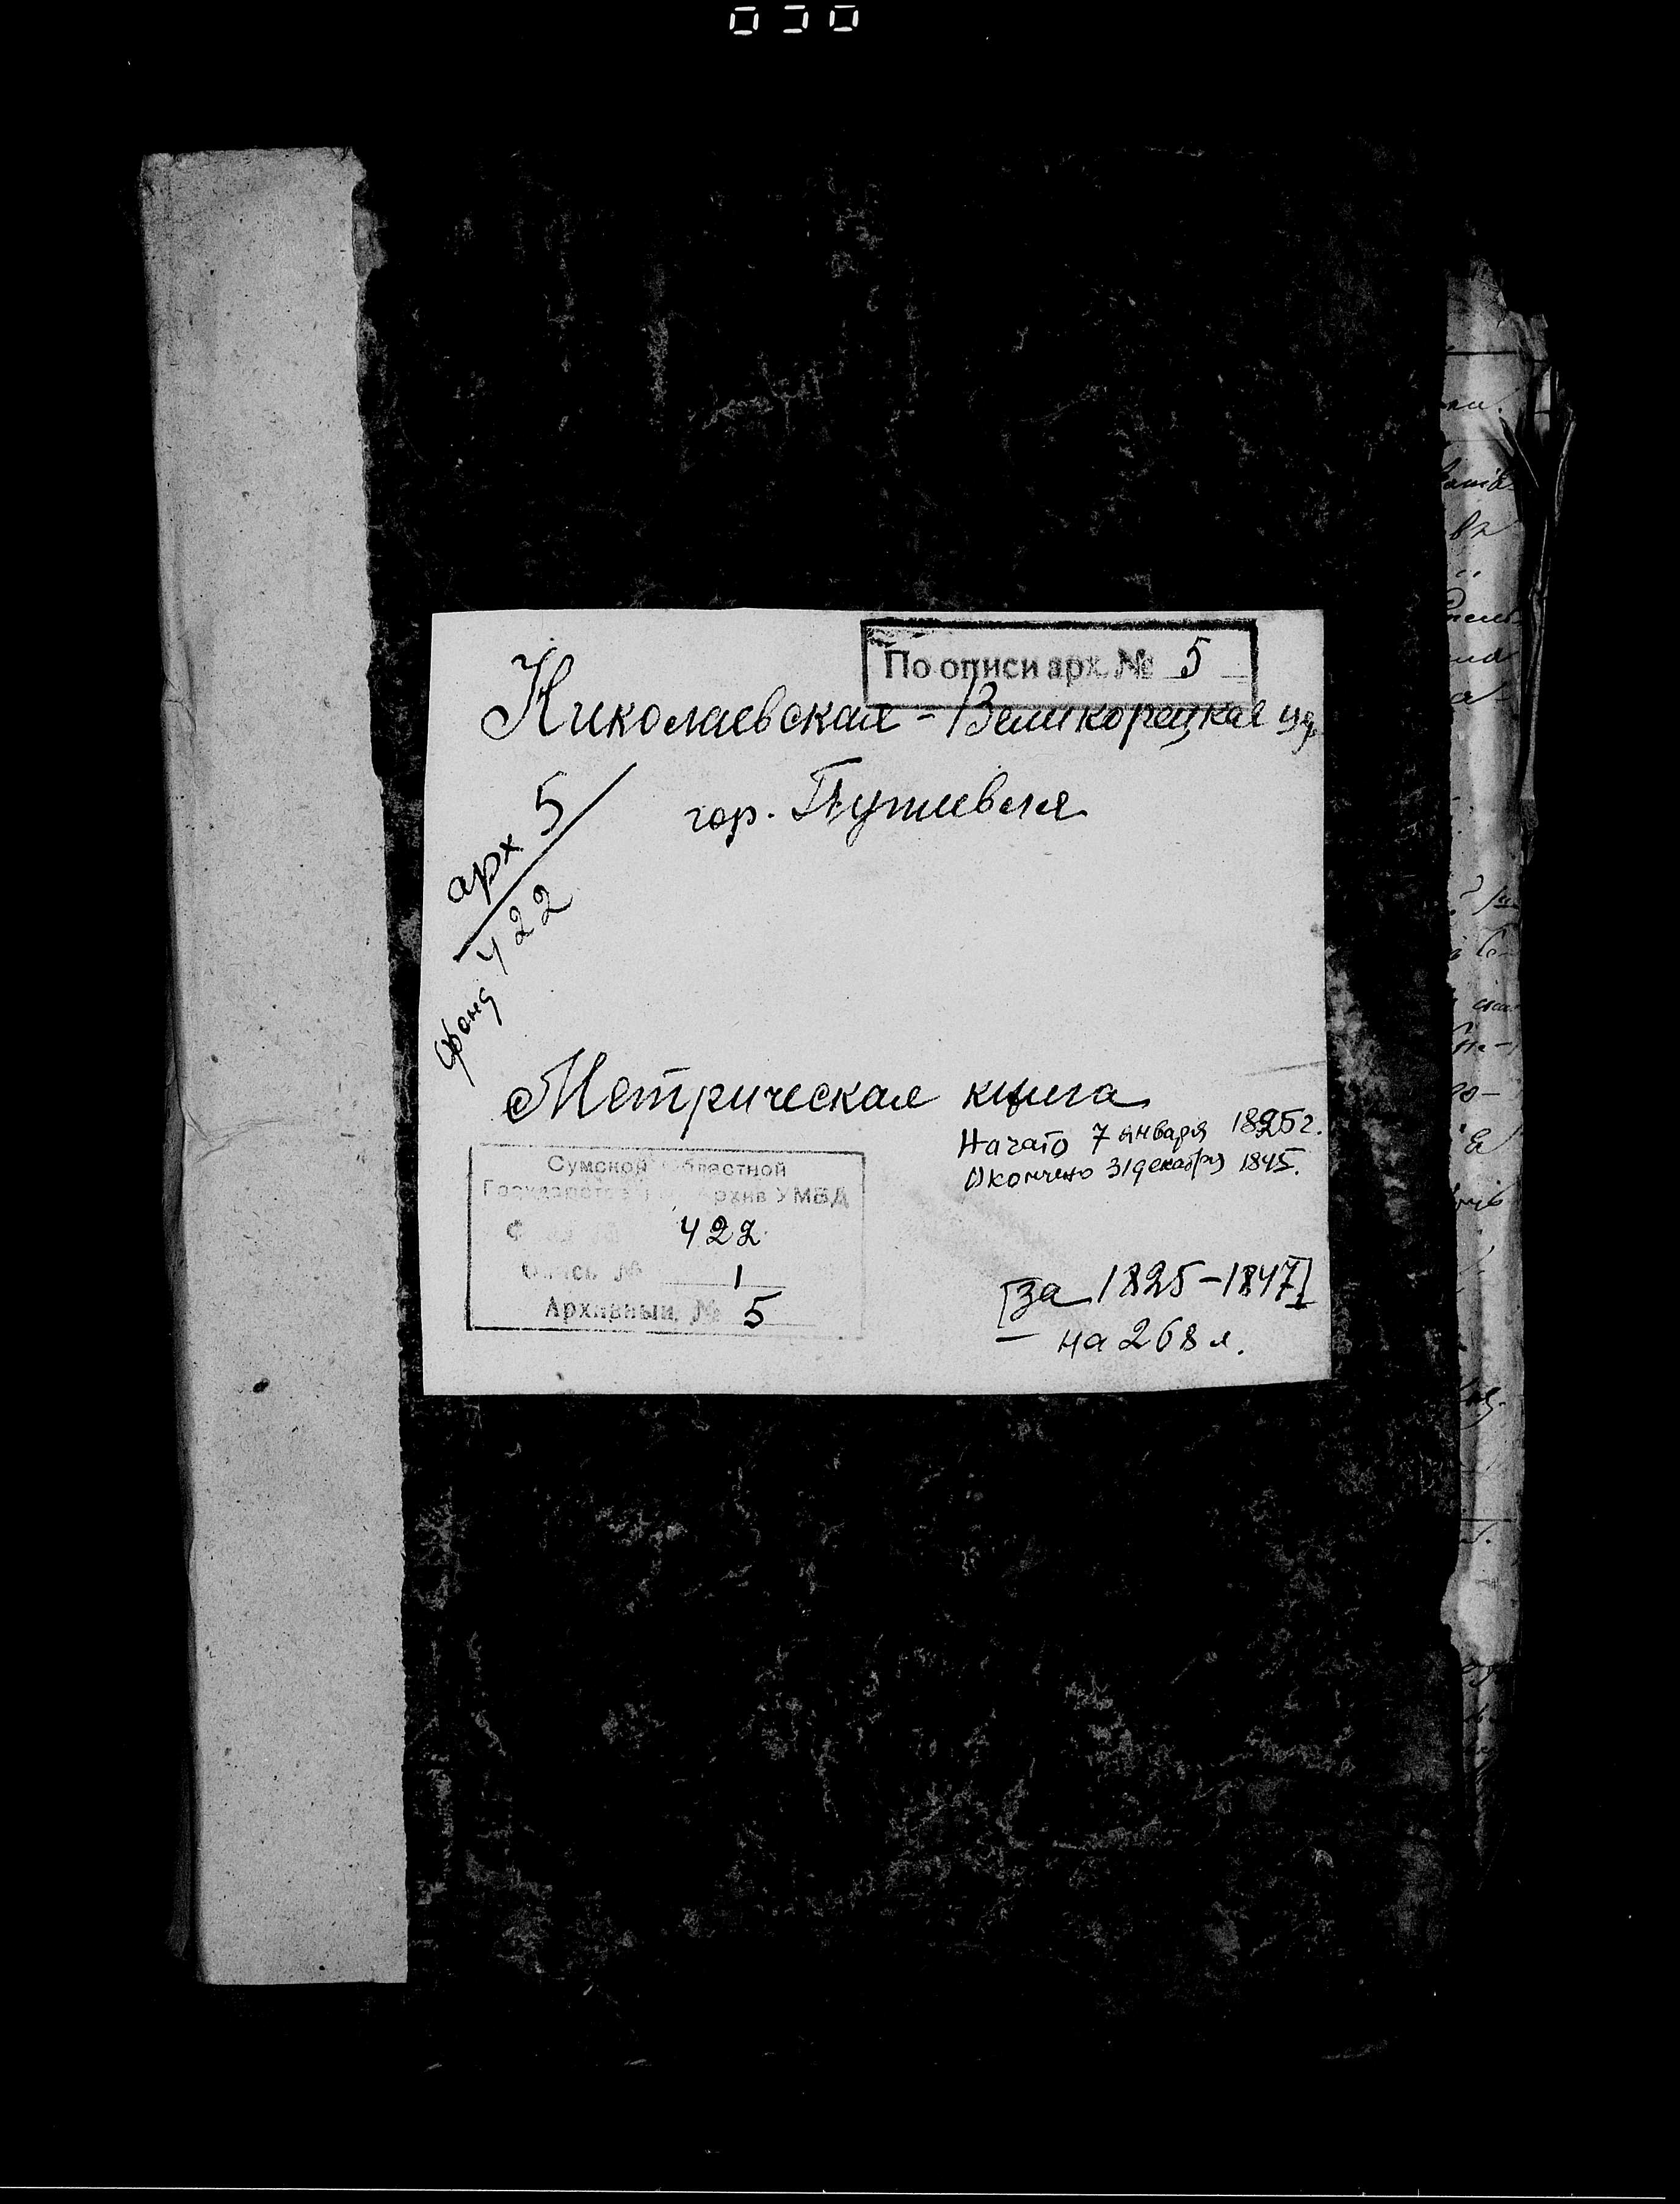 По описи арх. № 5
Николаевская - Великорецкая цр.
гор. Путивля
арх 5
фонд 422
Метрическая книга
Начато 7 января 1825 г.
Окончено 31 декабря 1845.
Сумской Областной
Государственный Архив УМВД
422
Опись № 1
Архивный № 5
[за 1825-1847]
на 268 л.